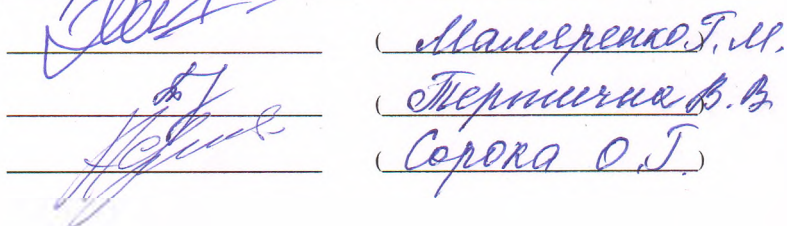 (Мамеренко Г. М.
(Тертична В. В
(Сорока О. Г.)